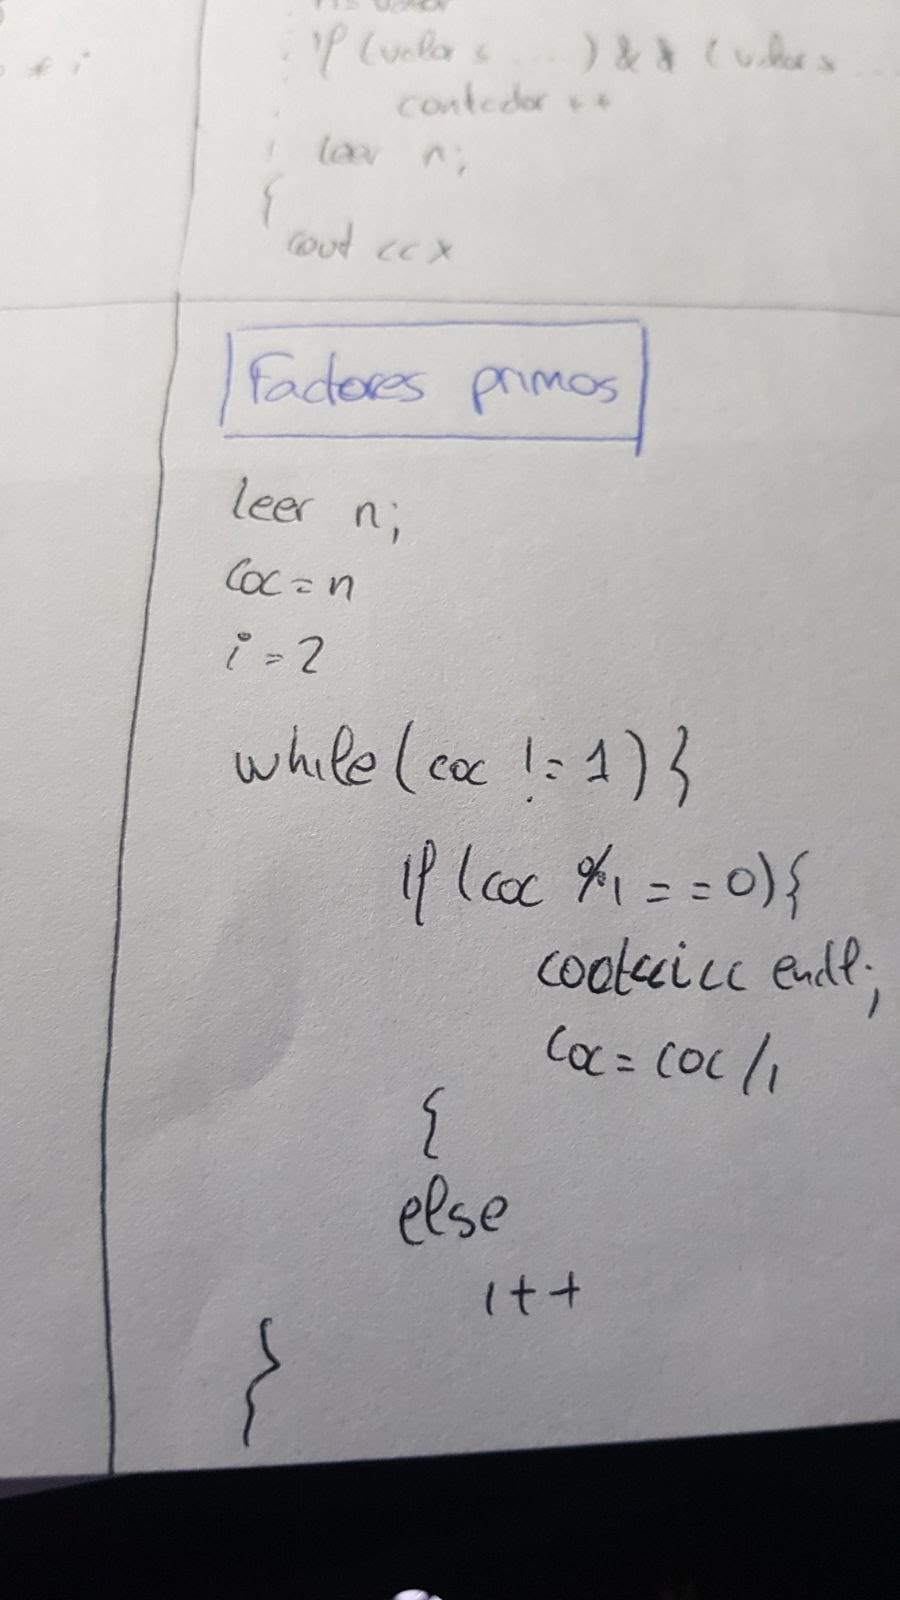 * i
if (valor < ...) && (valor > ...
contador ++
leer n;
{
cout << x
Factores primos
leer n;
coc = n
i = 2
while (coc != 1) }
if (coc % i == 0) {
cout << i << endl;
coc = coc / i
{
else
i++
}